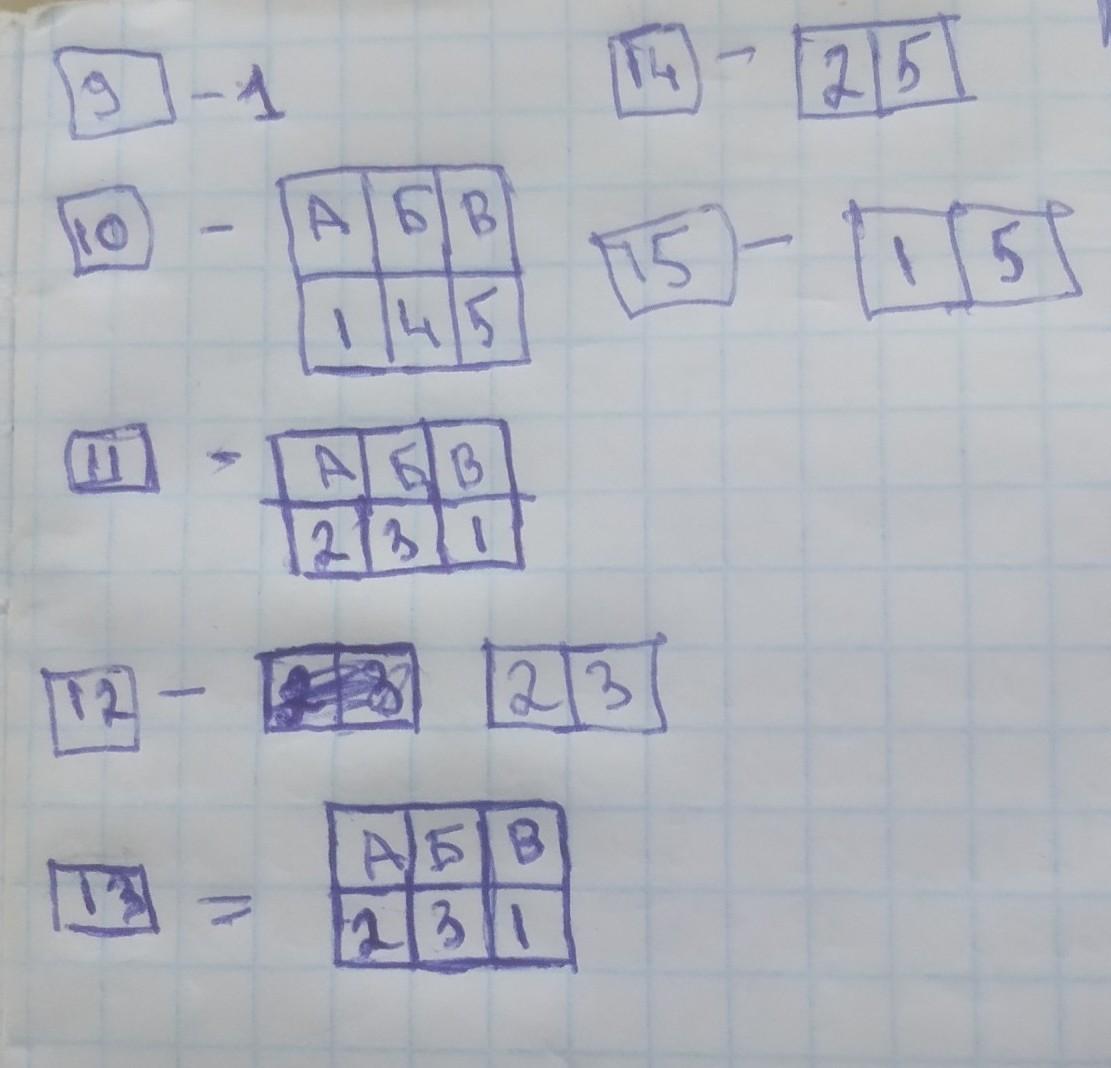 9 - 1
10 - А Б В
1 4 5
11 - А Б В
2 3 1
12 - 2 3 2 3
13 = А Б В
2 3 1
14 - 2 5
15 - 1 5